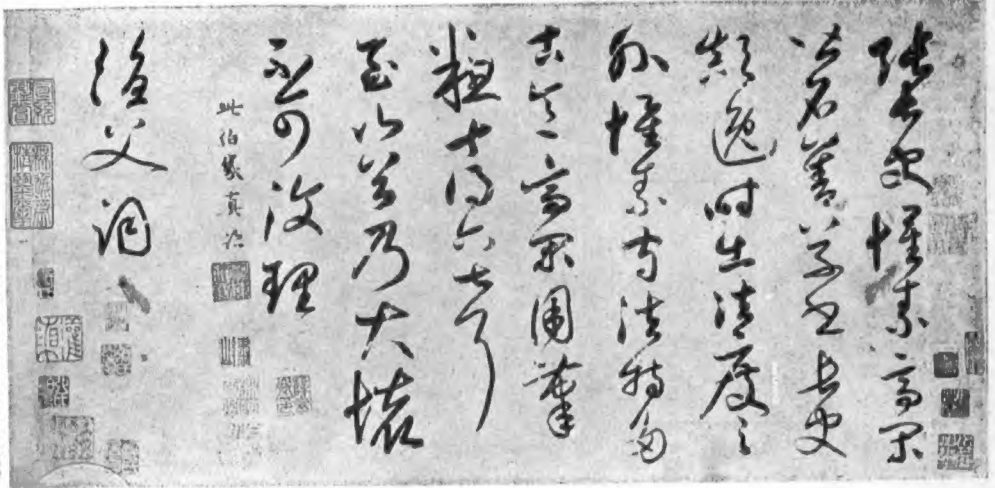 張長史懷素高閑
皆名善草書長史
顛逸時出法度之
外懷素守法特多
古意高閑用筆
粗十得六七耳
至山谷乃大壞
不可復理
此伯幾真迹
父詞